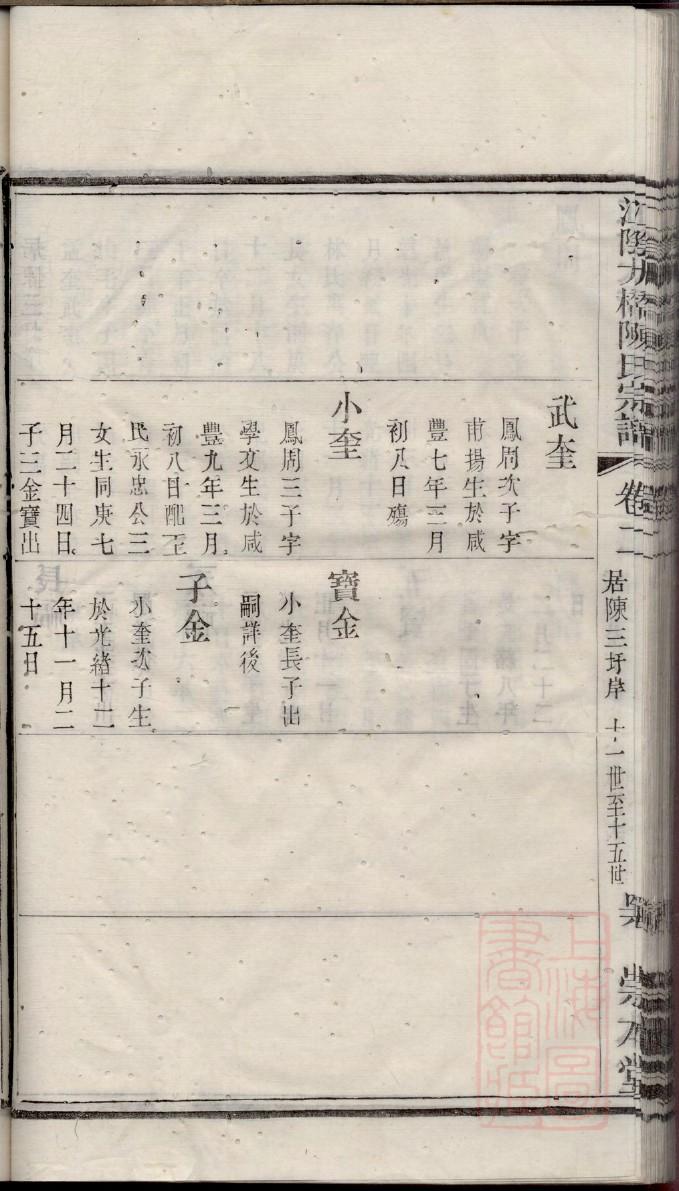 江陰九橋陳氏宗譜
卷二
居陳三圩岸
十一世至十五世
崇本堂
武奎
鳳周次子字
甫揚生於咸
豐七年三月
初八日殤
小奎
鳳周三子字
學文生於咸
豐九年三月
初八日配
民永忠公三
女生同庚七
月二十四日
子二金寶出
寶金
小奎長子出
嗣詳後
子金
小奎次子生
於光緒十二
年十一月二
十五日
上海圖書館藏